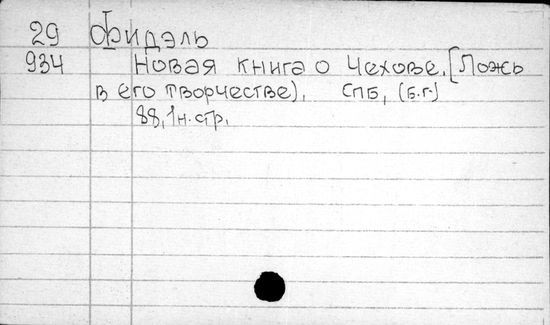 29 Фидэль
934 Новая книга о Чехове, [Ложь
в его творчестве), СПБ, (б.г.)
88, 1 н. стр.